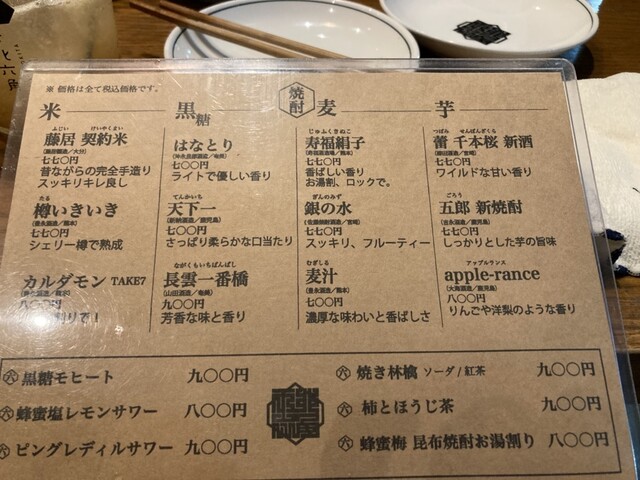 ※ 価格は全て税込価格です。
焼酎
米
ふじい けいやくまい
藤居 契約米
七七〇円
昔ながらの完全手造り
スッキリキレ良し
たる
樽いきいき
七〇〇円
シェリー樽で熟成
カルダモン TAKE7
八〇〇円
黒糖
はなとり
七〇〇円
ライトで優しい香り
てんかいち
天下一
七〇〇円
さっぱり柔らかな口当たり
ながくもいちばんばし
長雲一番橋
(山田酒造/奄美)
九〇〇円
芳香な味と香り
麦
じゅふくきぬこ
寿福絹子
七七〇円
香ばしい香り
お湯割、ロックで。
ぎんのみず
銀の水
七七〇円
スッキリ、フルーティー
むぎしる
麦汁
七〇〇円
濃厚な味わいと香ばしさ
芋
つぼみ せんぼんざくら
蕾 千本桜 新酒
七七〇円
ワイルドな甘い香り
ごろう
五郎 新焼酎
七〇〇円
しっかりとした芋の旨味
アップルランス
apple-rance
八〇〇円
りんごや洋梨のような香り
六 黒糖モヒート 九〇〇円
六 蜂蜜塩レモンサワー 八〇〇円
六 ピングレディルサワー 九〇〇円
六 焼き林檎 ソーダ/紅茶 九〇〇円
六 柿とほうじ茶 九〇〇円
六 蜂蜜梅 昆布焼酎お湯割り 八〇〇円